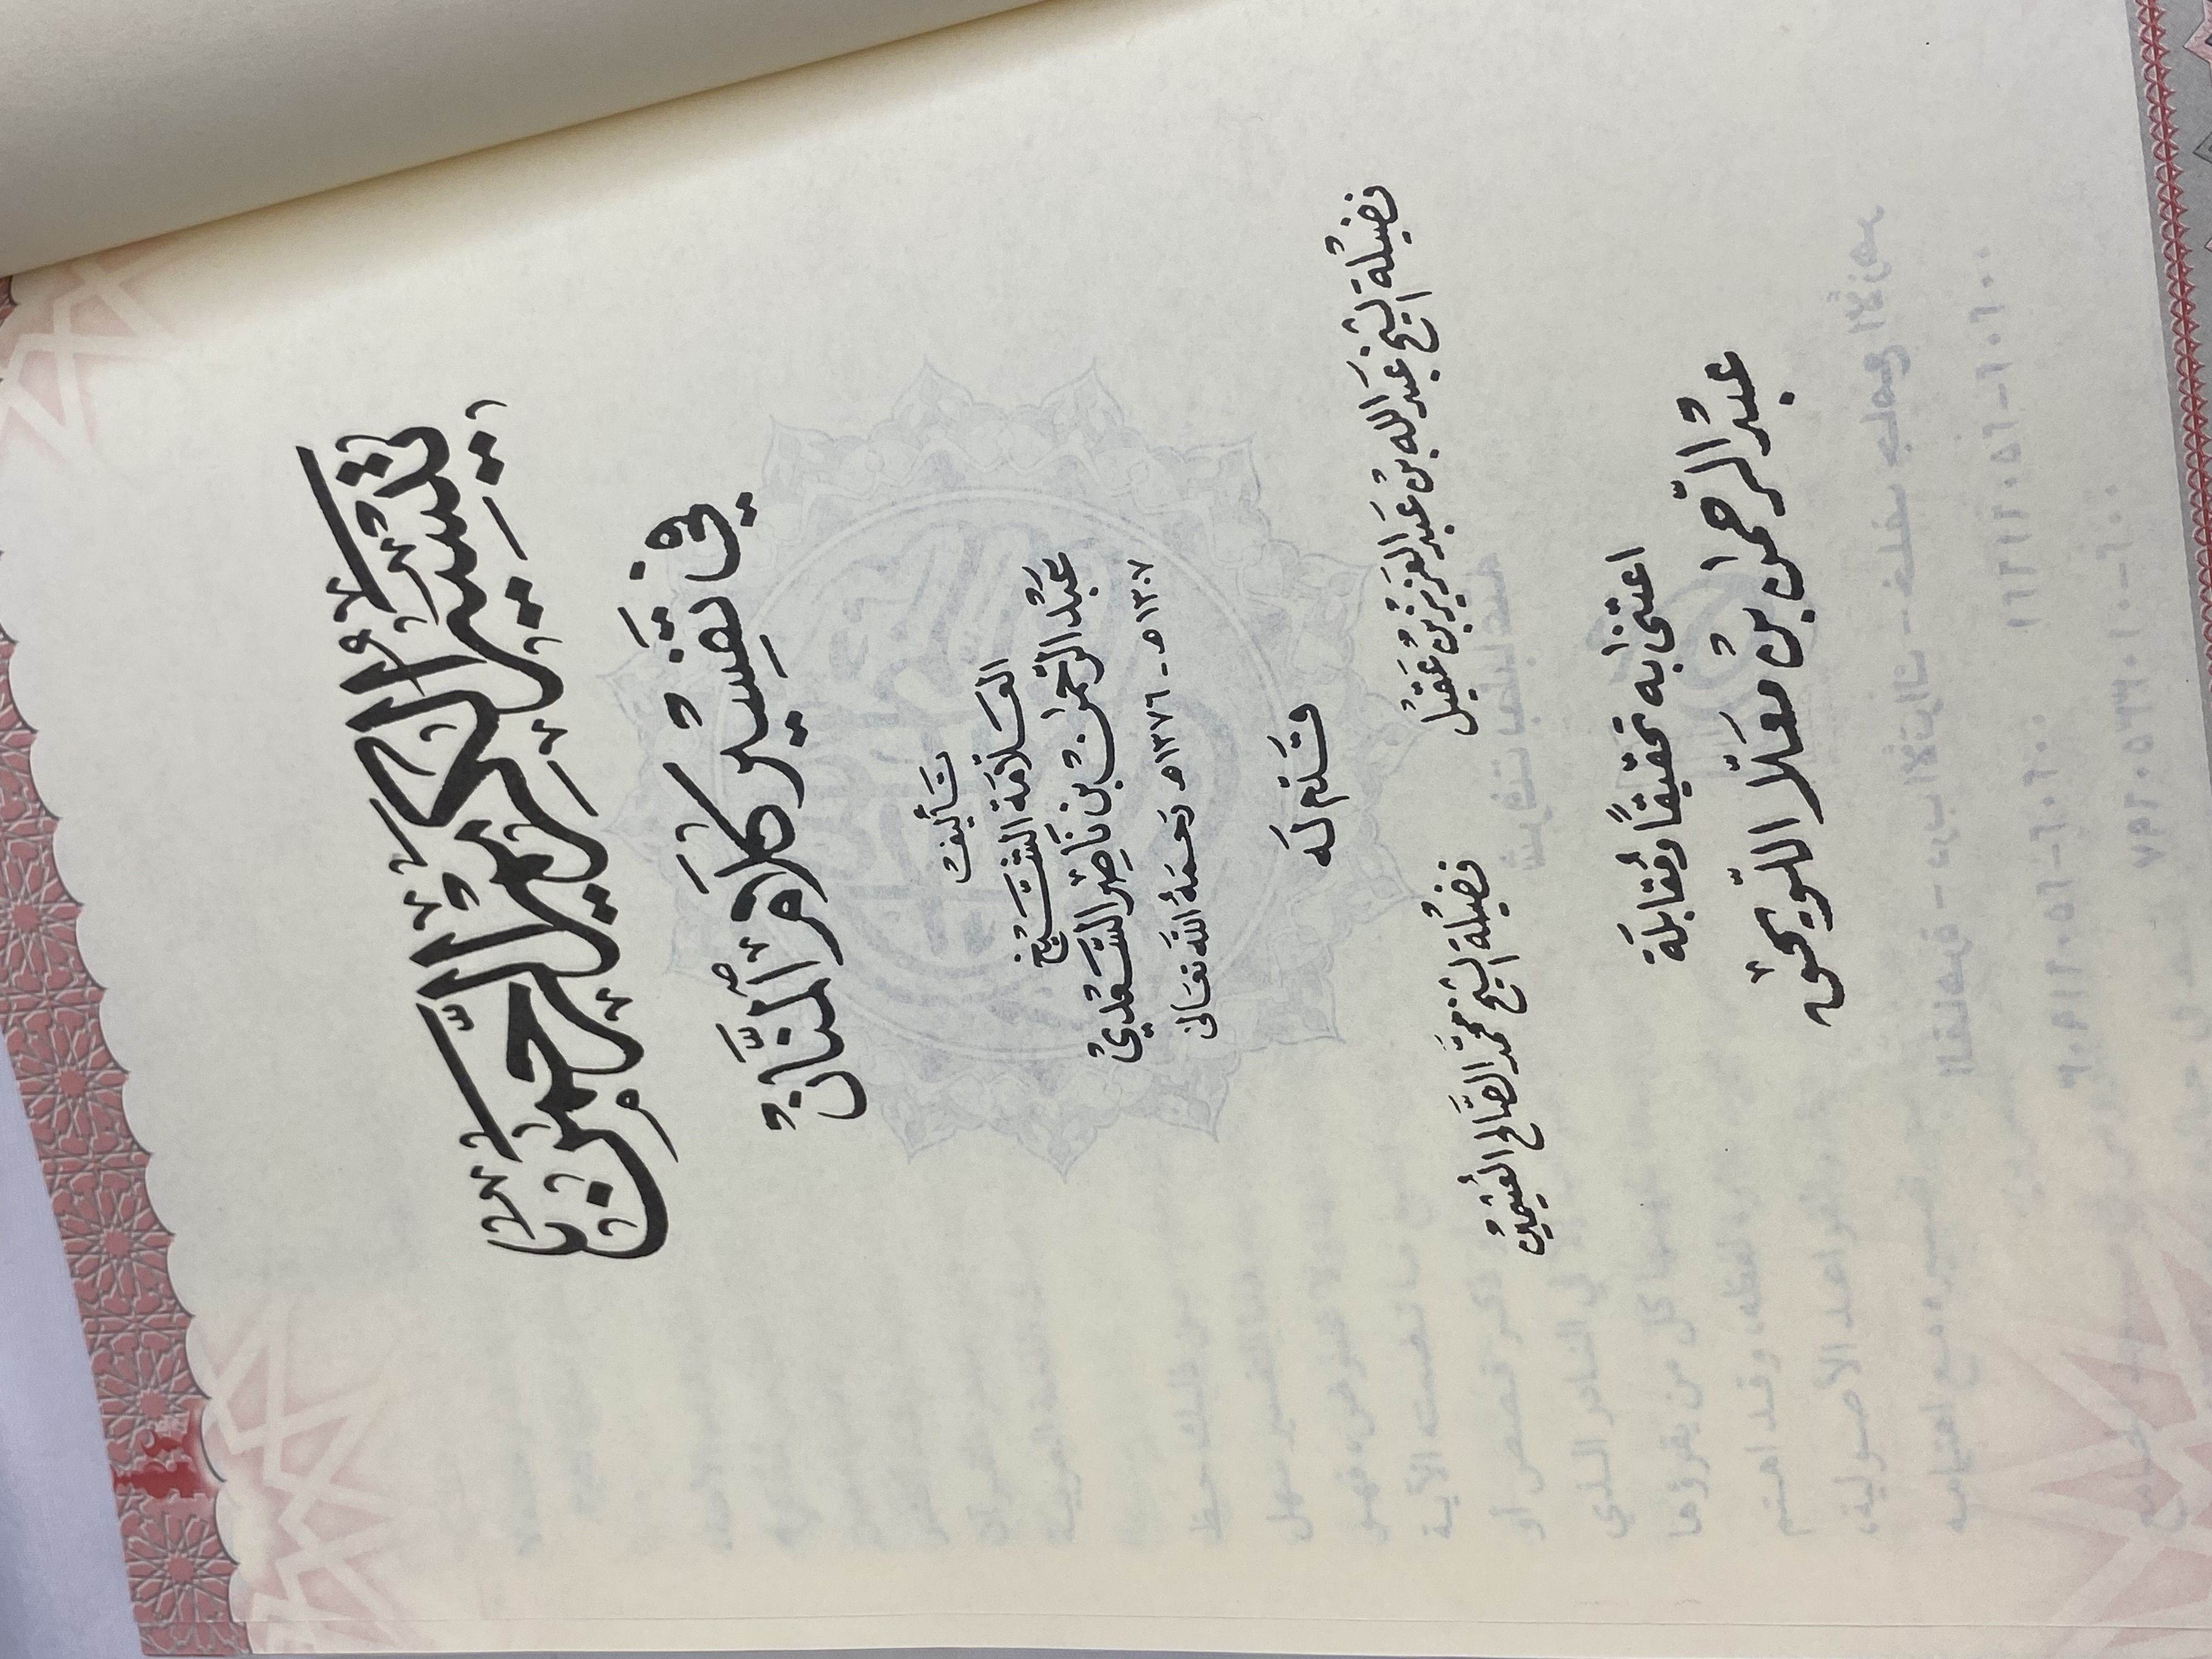 تَيْسِيرُ الْكَرِيمِ الرَّحْمٰنِ
فِي تَفْسِيرِ كَلَامِ الْمَنَّانِ
تَأليف
العَلّامَة الشَّيخ
عَبْد الرَّحمٰن بن نَاصِر السَّعْدي
١٣٠٧هـ - ١٣٧٦هـ رَحمَهُ اللّٰه تعَالى
قَدَّم لَه
فضيلة الشيخ عَبد الله بن عَبد العَزيز بن عَقيل
فضيلة الشيخ محمَّد الصَّالح العُثيمين
اعتنى به تحقيقاً وَمُقابلَة
عَبدُ الرَّحمٰن بن مُعَلّا اللّويحق